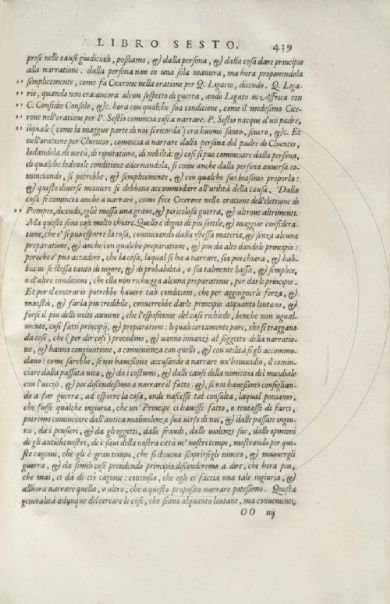 LIBRO SESTO. 439
prese nelle cause giudiciali, possiamo, & dalla persona, & dalla cosa dare principio
alla narratione. dalla persona non in una sola maniera, ma hora proponendola
semplicemente, come fa Cicerone nella oratione per Q. Ligario, dicendo. Q. Liga-
rio, quando non era ancora alcun sospetto di guerra, andò Legato in Affrica con
C. Considio Consolo, &c. hora con qualche sua conditione, come il medesimo Cice-
rone nell'oratione per P. Sestio comincia a narrare. P. Sestio nacque d'un padre,
ilquale (come la maggior parte di noi si ricorda) era huomo santo, severo, &c. Et
nell'oratione per Cluentio, comincia a narrare dalla persona del padre di Cluentio,
lodandola di virtù, di riputatione, di nobiltà: & così si può cominciare dalla persona,
di qualche lodevole conditione adornandola, si come anchora dalla persona aversa co-
minciando, si potrebbe, & semplicemente, & con qualche suo biasimo proporla:
& queste diverse maniere si debbono accommodare all'utilità della causa. Dalla
cosa si comincia anche a narrare, come fece Cicerone nella oratione dell'elettione di
Pompeo, dicendo, egli è mossa una grave, & pericolosa guerra, & altrove altrimenti.
Ma queste sono cose molto chiare. Quello è degno di più sottile, & maggior considera-
tione, che s'
preparatione, & anche con qualche preparatione, & pur da alto dandole principio:
perche può accadere, che la cosa, laqual si ha a narrare, sia
o d'altre conditioni, che ella non richiegga alcuna preparatione, per darle principio.
Et per il contrario potrebbe havere tali conditioni, che per aggiungerle forza, &
maestà, & farla più credibile, converrebbe darle principio alquanto lontano, &
forse il più delle volte aviene, che l'espositione del caso richiede, benche non ugual-
mente, così fatti principij, & preparationi: le quali certamente pare, che si traggano
da cose, che (per dir così) precedono, & vanno innanzi al soggetto della narratio-
ne, & hanno congiuntione, & convenienza con quelli, & con utilità si gli accommo-
dano: come sarebbe, se noi havessimo accusando a narrare un'homicidio, il comin-
ciare dalla passata vita, & da i costumi, & dalle cause della nimicitia del micidiale
con l'ucciso, & poi descendessimo a narrare il fatto. & se noi havessimo consiglian-
do a far guerra, ad esporre la cosa, onde nascesse tal consulta, laqual poniamo,
che fusse qualche ingiuria, che un Principe ci havesse fatto, o tentasse di farci,
potremo cominciare dall'antica malivolenza sua verso di noi, & dalle passate ingiu-
rie, da i pensieri, & da gli oggetti, dalle fraudi, dalle violenze sue,
mostrando per que-
ste cagioni, che gli è gran tempo, che si doveva scoprirsegli nimico, & muovergli
guerra, & da simili cose prendendo principio, discenderemo a dire, che hora più,
che mai, ci dà di ciò cagione: conciosia, che egli ci faccia una tale ingiuria, &
allhora narrare quella, o altro, che a questo proposito narrare potessimo. Questa
generalità adunque del cercare le cose, che siano alquanto lontane, ma convenienti,
OO iij